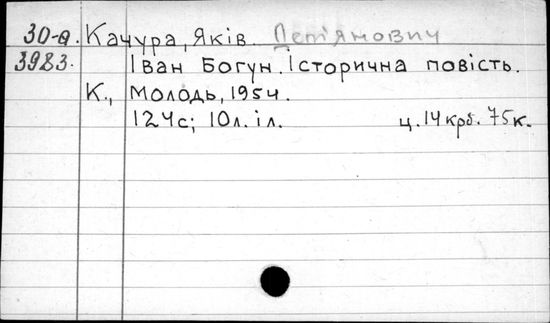 30-а. Качура, Яків Дем'янович
3983. Іван Богун. Історична повість.
К., Молодь, 1954.
124с; 10л. іл. ц. 14 крб. 75к.